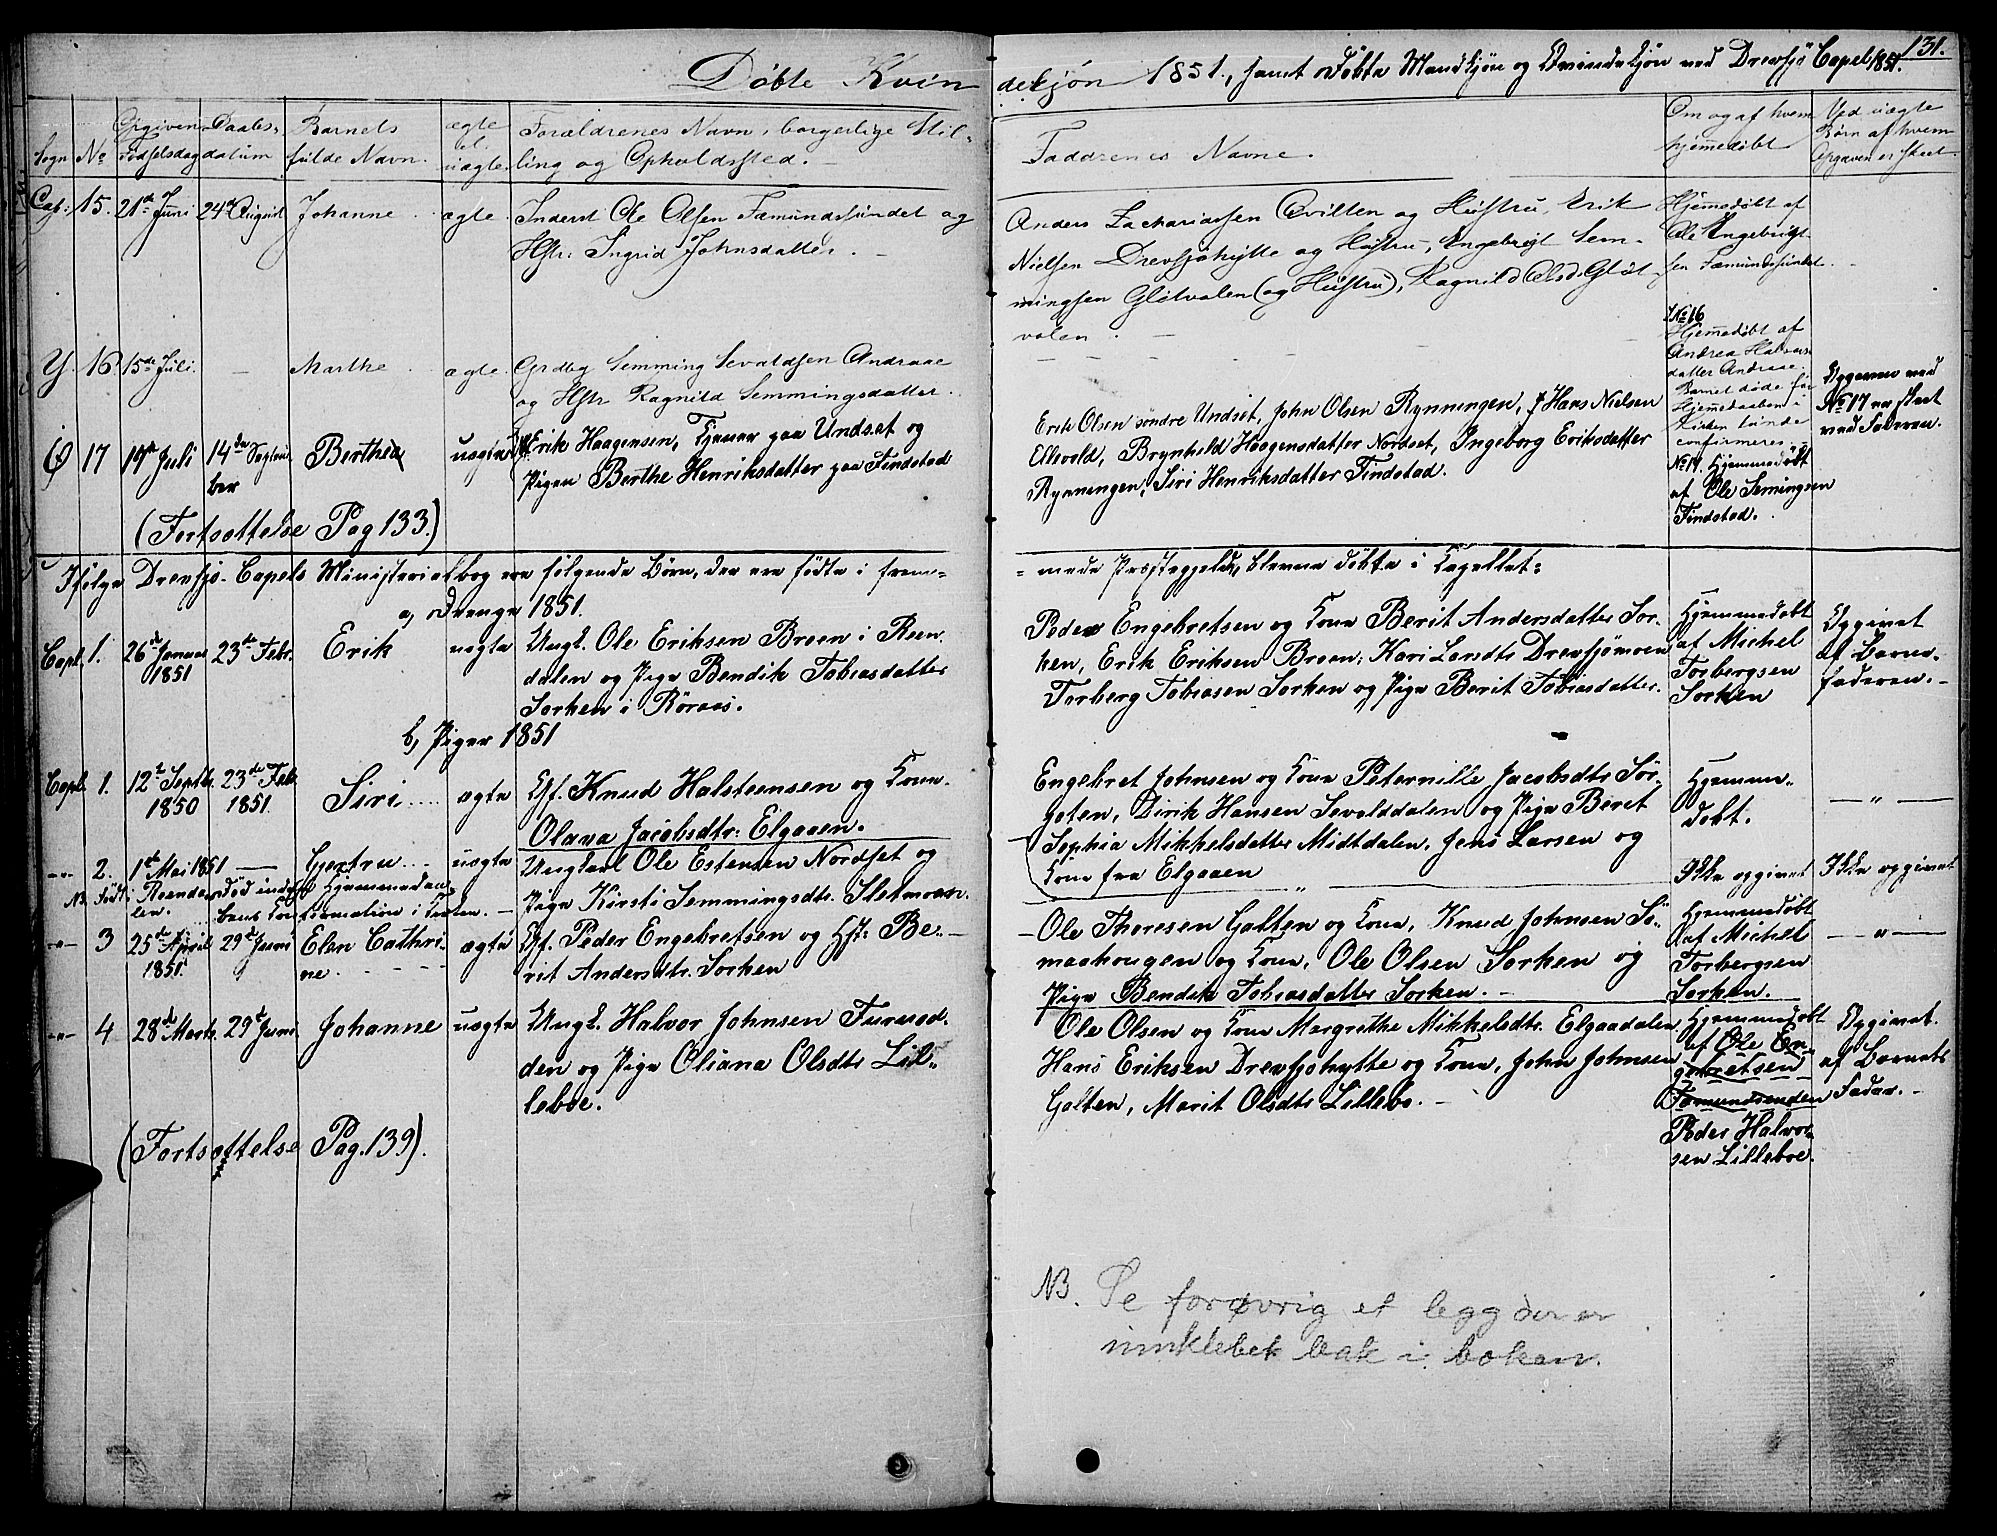 131.
Døbte Kvindekjøn 1851, samt Døbte Mandkjøn og Qvindekjøn ved Drevsjø Capel 1851.
Sogn
No
Opgiven Fødselsdag
Daabsdatum
Barnets fulde Navn.
ægte el. uægte.
Forældrenes Navn, borgerlige Stilling og Opholdssted.
Faddrenes Navne.
Om og af hvem hjemedøbt
Ved uægte Børn af hvem Opgaven er skeet
Cap: 15. 21de Juni 24 August Johanne ægte. Inderst Ole Olsen Fæmundssundet og
Hstr: Ingrid Johnsdatter.
Anders Zachariassen Qvilten og Hustru, Erik
Nielsen Drevsjøhytte og Hustru, Engebregt Sem-
mingsen Gløtvolen (og Hustru), Ragnild Olsd. Gløt-
volen.
Hjemedøbt af
Ole Engebrigt-
sen Fæmundssundet.
Y. 16. 15de Juli. — Marthe ægte. Grdbg Semming Sevaldsen Andraae
og Hstr Ragnild Semmingsdatter.
No 16
Hjemedøbt af
Andrea Halvors-
datter Andraae.
Barnet døde før
Hjemedaaben i
Kirken kunde
confirmeres.
Ø 17 19de Juli 14de Septem-
ber Berthea uægte Erik Haagensen, Tjener paa Undset og
Pigen Berthe Henriksdatter paa Findstad
Erik Olsen søndre Undset, John Olsen Rynningen, Hans Nielsen
Ellevold, Brynhild Haagensdatter Nordset, Ingeborg Eriksdatter
Rynningen, Siri Henriksdatter Findstad.
No 17. Hjemmedøbt
af Ole Semingsen
Findstad.
Opgaven ved
No 17 er skeet
ved Faderen.
(Fortsættelse Pag 133.)
Ifølge Drevsjø-Capels Ministerialbog ere følgende Børn, der ere fødte i frem-
= mede Præstegjelde, blevne døbte i Capellet:
a, Drenge 1851.
Capl. 1. 26de Januar
1851 23de Febr. Erik uægte Ungk. Ole Eriksen Broen i Reen-
dalen og Pige Bendik Tobiasdatter
Sorken i Røraas.
Peder Engebretsen og Kone Berit Andersdatter Sor-
ken, Erik Eriksen Broen, Kari Larsdtr Drevsjømoen
Torberg Tobiasen Sorken og Pige Berit Tobiasdatter.
Hjemmedøbt
af Michel
Torbergsen
Sorken
Opgivet
af Barne-
faderen.-
b, Piger 1851
Capl. 1. 12te Septb.
1850 23de Feb.
1851. Siri ægte Gf. Knud Halsteensen og Kone
Olava Jacobsdtr: Elgaaen.
Engebret Johnsen og Kone Peternille Jacobsdtr Sør-
goten, Dirik Hansen Sevolddalen og Pige Beret
Sophia Mikkelsdatter Midtdalen, Jens Larsen og
Kone fra Elgaaen
Hjemme-
døbt.
— " —
-"- 2. 1ste Mai 1851 — Gjertru uægte Ungkarl Ole Estensen Nordset og
Pige Kirsti Semmingsdtr. Sletmoen.
NB. Født i Reenda-
len. Død inden Hjemmedaa-
bens Con-
firmation i Kirken. —
"
Ikke opgivet
Ikke opgivet
-"- 3 25de April
1851. 29de Juni Elen Cathri-
ne. ægte Gf. Peder Engebretsen og Hst: Be-
rit Andersdtr. Sorken
Ole Theresen Galten og Kone, Knud Johnsen Sö-
maahougen og Kone, Ole Olsen Sorken og
Pige Bendik Tobiasdatter Sorken. -
Hjemmedøbt
af Michel
Torbergsen
Sorken.
— " —
-"- 4 28de Marts 29de Juni Johanne uægte Ungk. Halvor Johnsen Furuod-
den og Pige Oliana Olsdtr Lil-
leboe.
Ole Olsen og Kone Margrethe Mikkelsdtr. Elgaadalen,
Hans Eriksen Drevsjøhytte og Kone, John Johnsen
Galten, Marit Olsdtr Lillebo. -
Hjemmedøbt
af Ole En-
gebretsen
Fæmundsenden
Peder Halvor-
sen Lilleboe.
Opgivet
af Barnets
Fader. -
(Fortsættelse Pag. 139).
NB. Se forøvrig et legg der er
innklebet bak i boken.